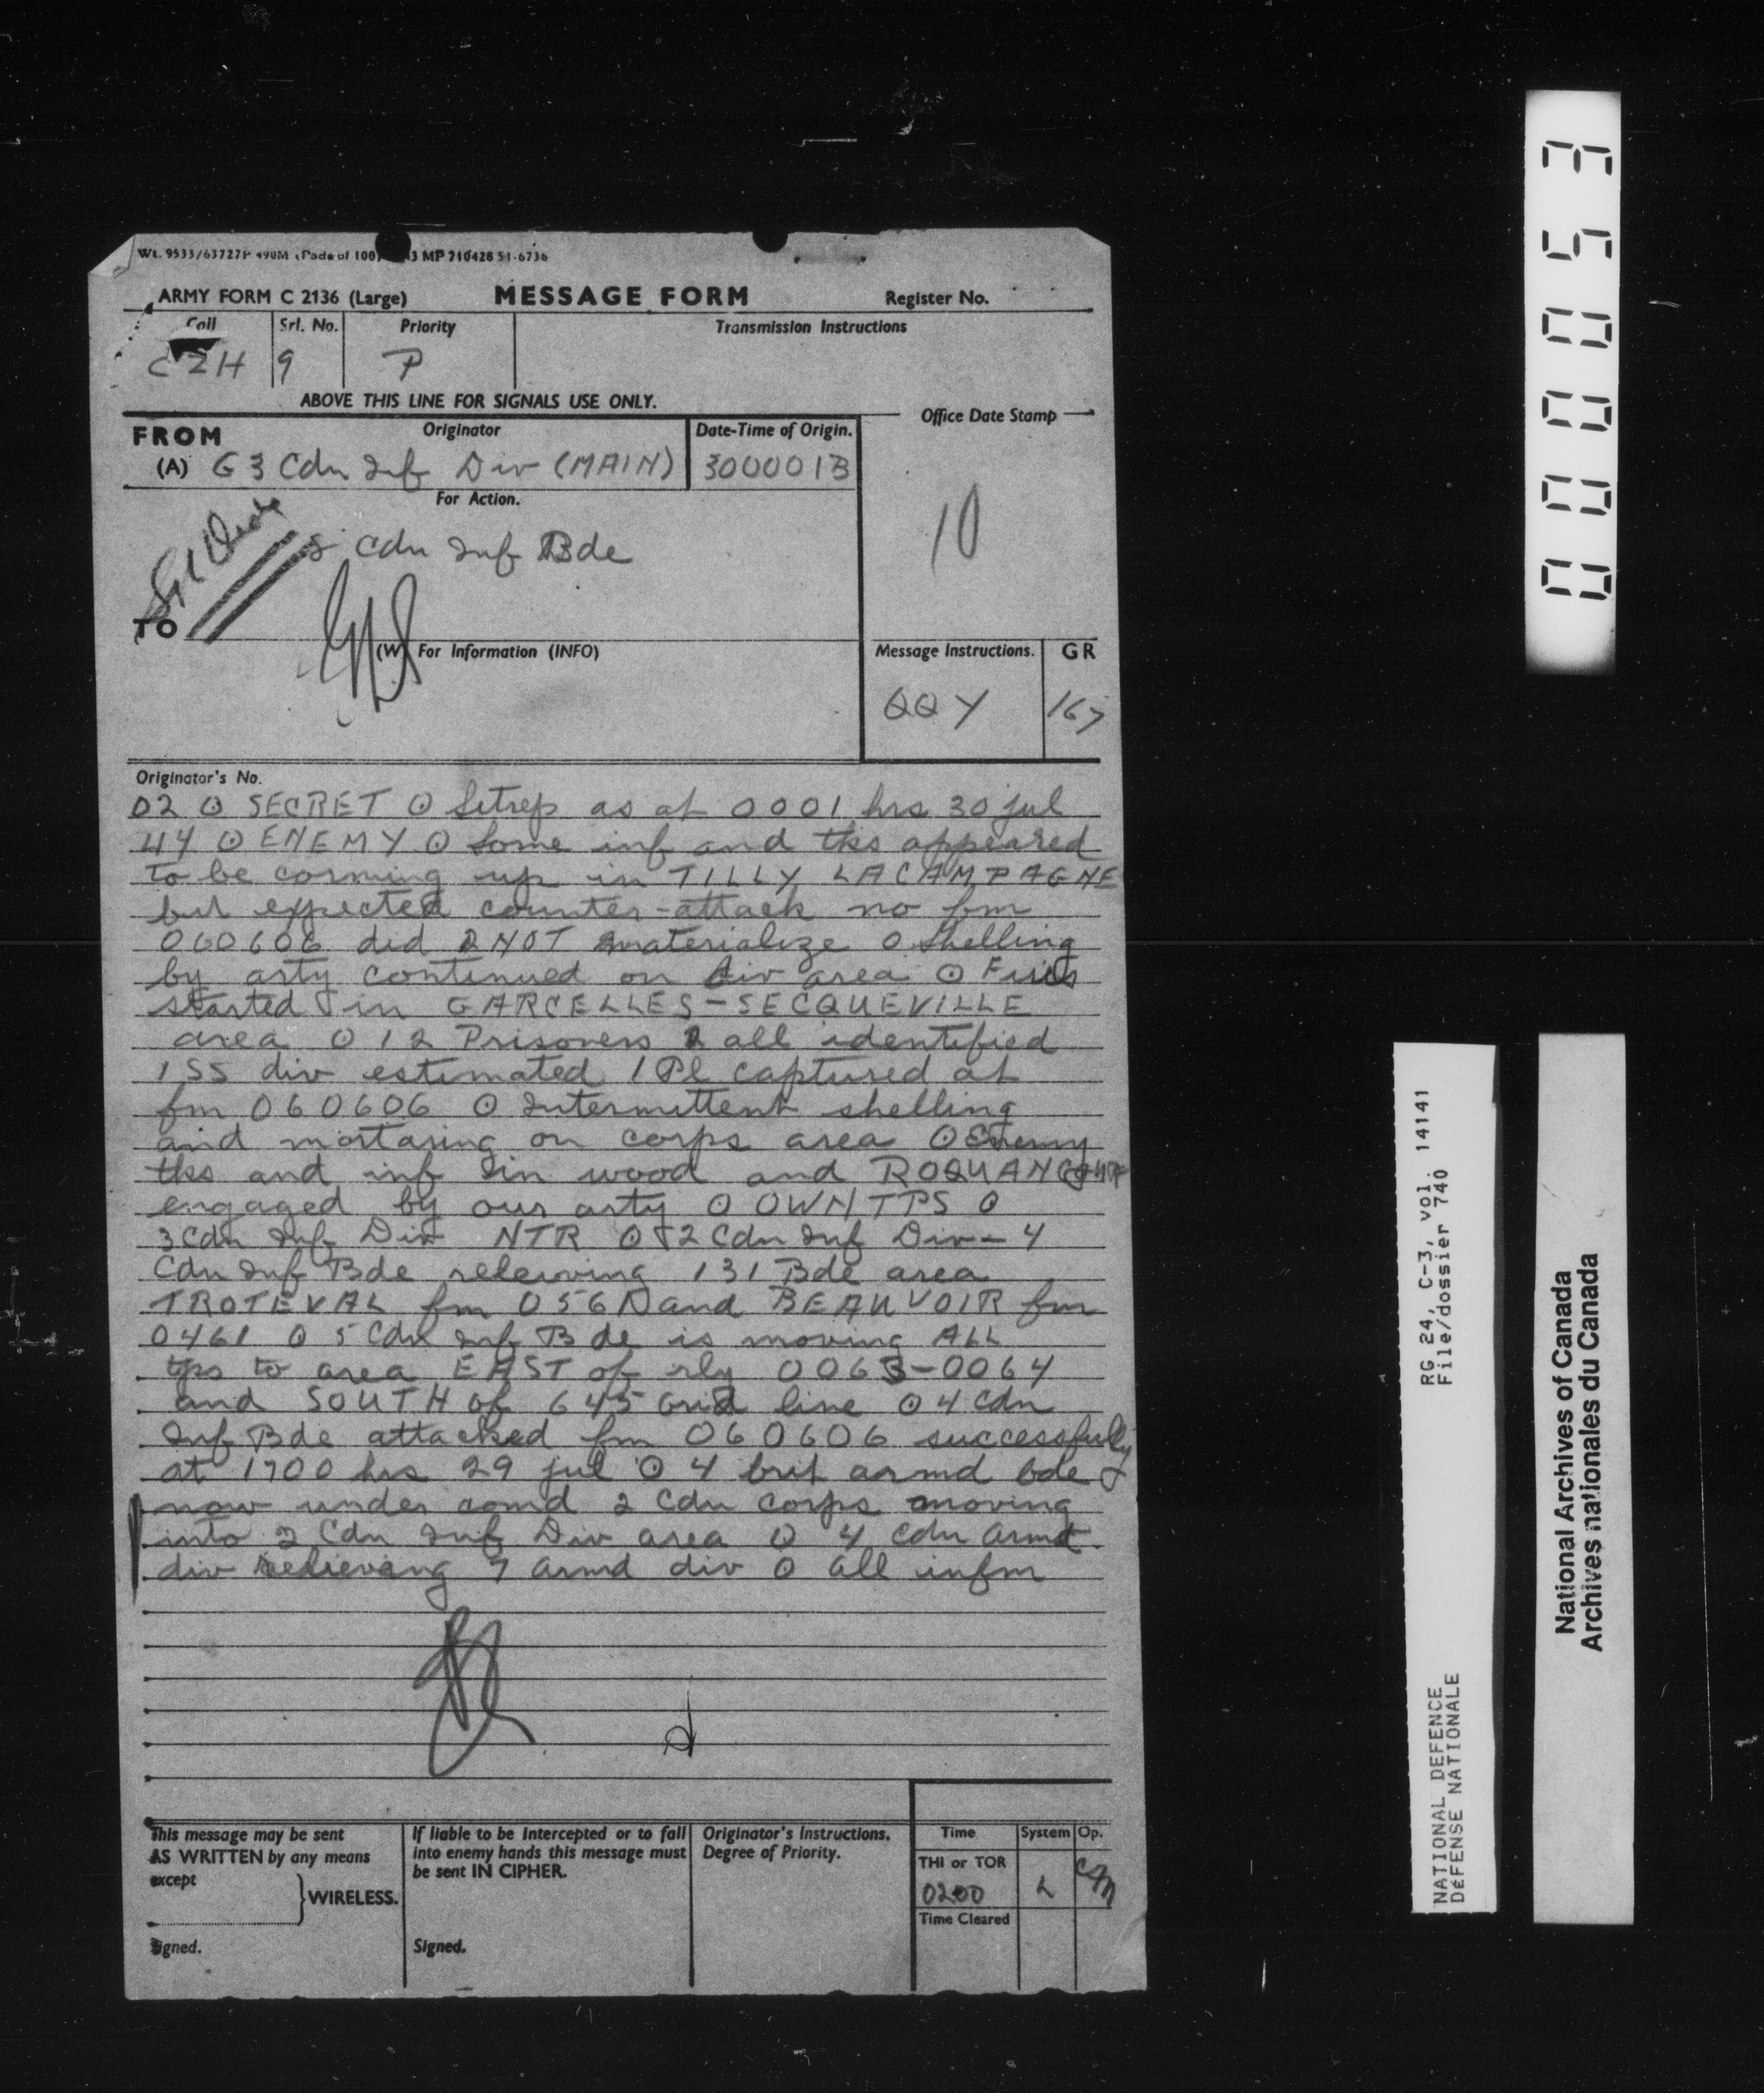 Wt. 9533/63727P 490M (Pads of 100) 43 MP 710428 51-6736
ARMY FORM C 2136 (Large) MESSAGE FORM Register No.
Call Srl. No. Priority Transmission Instructions
CZH 9 P
ABOVE THIS LINE FOR SIGNALS USE ONLY.
FROM Originator Date-Time of Origin. Office Date Stamp
(A) G 3 Cdn Inf Div (MAIN) 300001B
For Action.
10
Cdn Inf Bde
TO
(W) For Information (INFO) Message Instructions. GR
QQY 167
Originator's No.
02 O SECRET O Sitrep as at 0001 hrs 30 jul
44 O ENEMY O Some inf and tks appeared
to be coming up in TILLY LACAMPAGNE
but expected counter-attack no fm
060606 did NOT materialize O Shelling
by arty continued on div area O Fires
started in GARCELLES-SECQUEVILLE
area O 12 Prisoners all identified
1 SS div estimated 1 Pl captured at
fm 060606 O Intermittent shelling
and mortaring on corps area O Enemy
tks and inf in wood and
engaged by our arty O OWN TPS O
3 Cdn Inf Div NTR O 2 Cdn Inf Div - 4
Cdn Inf Bde releiving 131 Bde area
TROTEVAL fm 0561 and BEAUVOIR fm
0461 O 5 Cdn Inf Bde is moving ALL
tps to area EAST of rly 0063-0064
and SOUTH of 645 Grid line O 4 Cdn
Inf Bde attacked fm 060606 successfully
at 1700 hrs 29 jul O 4 brit armd bde
now under comd 2 Cdn corps moving
into 2 Cdn Inf Div area O 4 Cdn armd
div relieving 7 armd div O all infm
This message may be sent AS WRITTEN by any means except } WIRELESS.
Signed.
If liable to be intercepted or to fall into enemy hands this message must be sent IN CIPHER.
Signed.
Originator's Instructions. Degree of Priority.
Time System Op.
THI or TOR
0200 L
Time Cleared
000053
RG 24, C-3, vol. 14141
File/dossier 740
NATIONAL DEFENCE
DÉFENSE NATIONALE
National Archives of Canada
Archives nationales du Canada